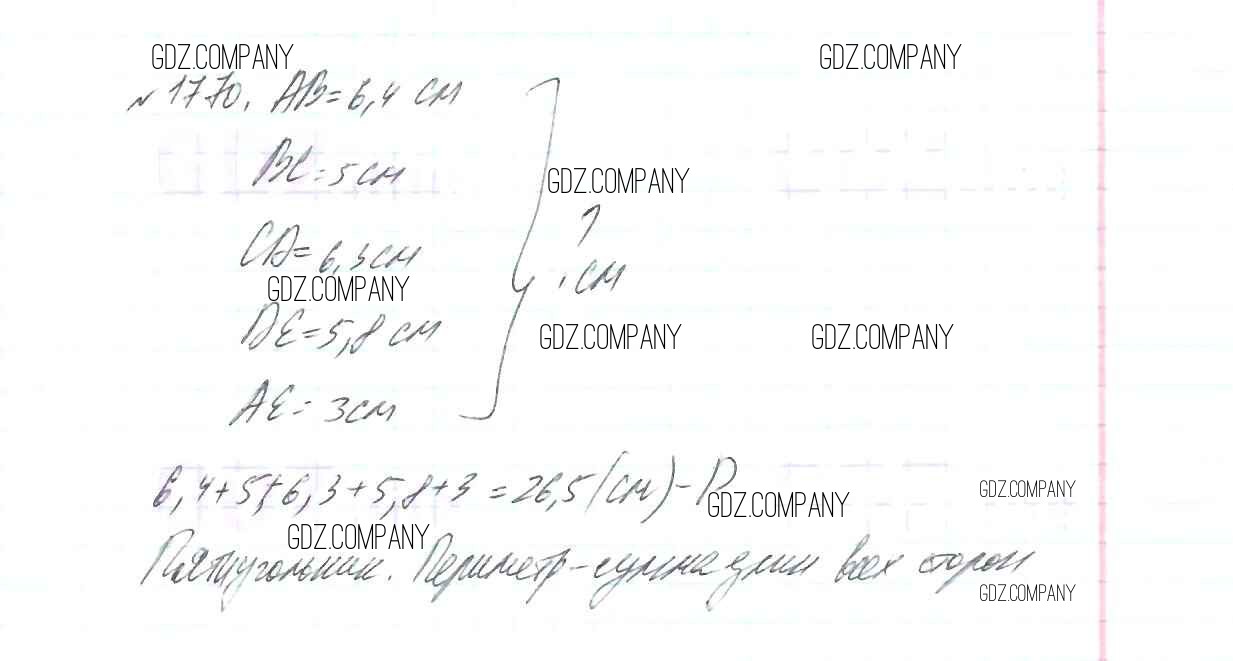 GDZ.COMPANY GDZ.COMPANY
№ 1770. AB = 6,4 см
BC = 5 см
GDZ.COMPANY
CD = 6,3 см
? см
GDZ.COMPANY
DE = 5,8 см
GDZ.COMPANY GDZ.COMPANY
AE = 3 см
6,4 + 5 + 6,3 + 5,8 + 3 = 26,5 (см) - P
GDZ.COMPANY GDZ.COMPANY
GDZ.COMPANY
Пятиугольник. Периметр - сумма длин всех сторон
GDZ.COMPANY